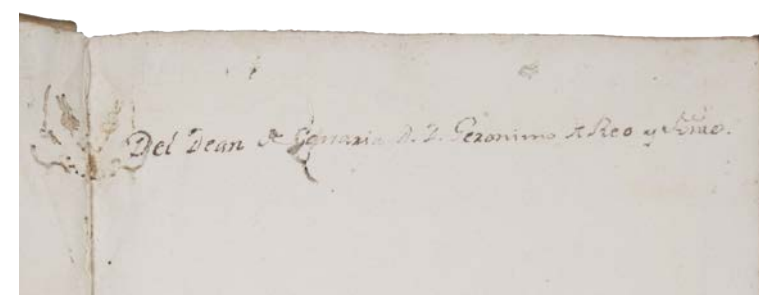 Del Dean de Canaria D. D. Geronimo de Roo y